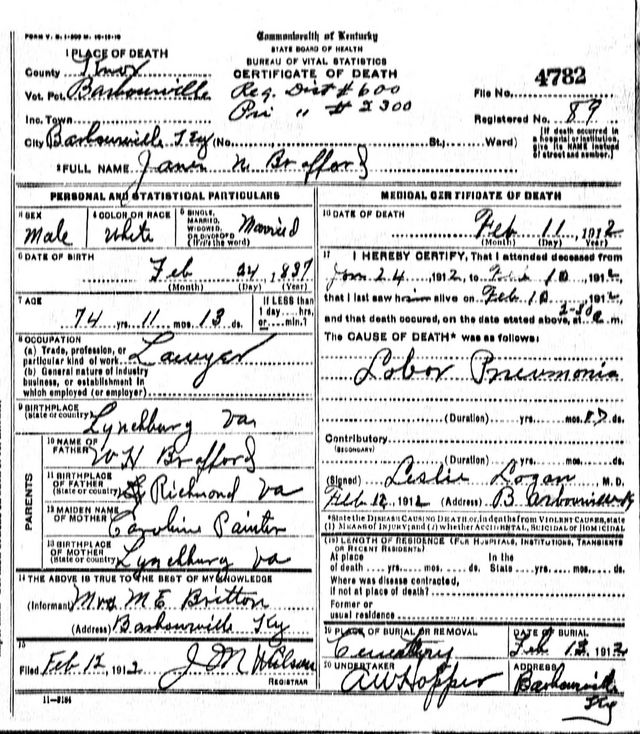 FORM V. S. 1-300 M. 10-10-10
Commonwealth of Kentucky
STATE BOARD OF HEALTH
BUREAU OF VITAL STATISTICS
CERTIFICATE OF DEATH
1 PLACE OF DEATH
County Knox
Vot. Pct. Barbourville Reg. Dist # 600
Inc. Town Pri " # 2300
File No. 4782
Registered No. 89
City Barbourville Ky (No. St.; Ward)
[If death occurred in a hospital or institution, give its NAME instead of street and number.]
2 FULL NAME James N Brafford
PERSONAL AND STATISTICAL PARTICULARS
3 SEX Male
4 COLOR OR RACE White
5 SINGLE, MARRIED, WIDOWED, OR DIVORCED (Write the word) Married
6 DATE OF BIRTH Feb 24, 1837
(Month) (Day) (Year)
7 AGE 74 yrs. 11 mos. 13 ds.
If LESS than 1 day....hrs. or....min.?
8 OCCUPATION
(a) Trade, profession, or particular kind of work Lawyer
(b) General nature of industry business, or establishment in which employed (or employer)
9 BIRTHPLACE (State or country) Lynchburg Va
PARENTS
10 NAME OF FATHER W H Brafford
11 BIRTHPLACE OF FATHER (State or country) Richmond Va
12 MAIDEN NAME OF MOTHER Caroline Painter
13 BIRTHPLACE OF MOTHER (State or country) Lynchburg Va
14 THE ABOVE IS TRUE TO THE BEST OF MY KNOWLEDGE
(Informant) Mrs M E Britton
(Address) Barbourville Ky
15
Filed Feb 12, 1912 J M Wilson
REGISTRAR
11-3184
MEDICAL CERTIFICATE OF DEATH
16 DATE OF DEATH Feb 11, 1912
(Month) (Day) (Year)
17 I HEREBY CERTIFY, That I attended deceased from
Jan 24 1912, to Feb 10 1912,
that I last saw him alive on Feb 10 1912,
and that death occured, on the date stated above, at 2-30 m.
The CAUSE OF DEATH* was as follows:
Lobor Pneumonia
(Duration) yrs. mos. ds.
Contributory
(SECONDARY)
(Duration) yrs. mos. ds.
(Signed) Leslie Logan M. D.
Feb 12, 1912 (Address) Barbourville Ky
*State the DISEASE CAUSING DEATH, or, in deaths from VIOLENT CAUSES, state (1) MEANS OF INJURY; and (2) whether ACCIDENTAL, SUICIDAL OR HOMICIDAL
18 LENGTH OF RESIDENCE (FOR HOSPITALS, INSTITUTIONS, TRANSIENTS OR RECENT RESIDENTS)
At place of death yrs. mos. ds. In the State yrs. mos. ds.
Where was disease contracted, if not at place of death?
Former or usual residence
19 PLACE OF BURIAL OR REMOVAL Cemetery
DATE OF BURIAL Feb 12, 1912
20 UNDERTAKER A W Hopper
ADDRESS Barbourville Ky